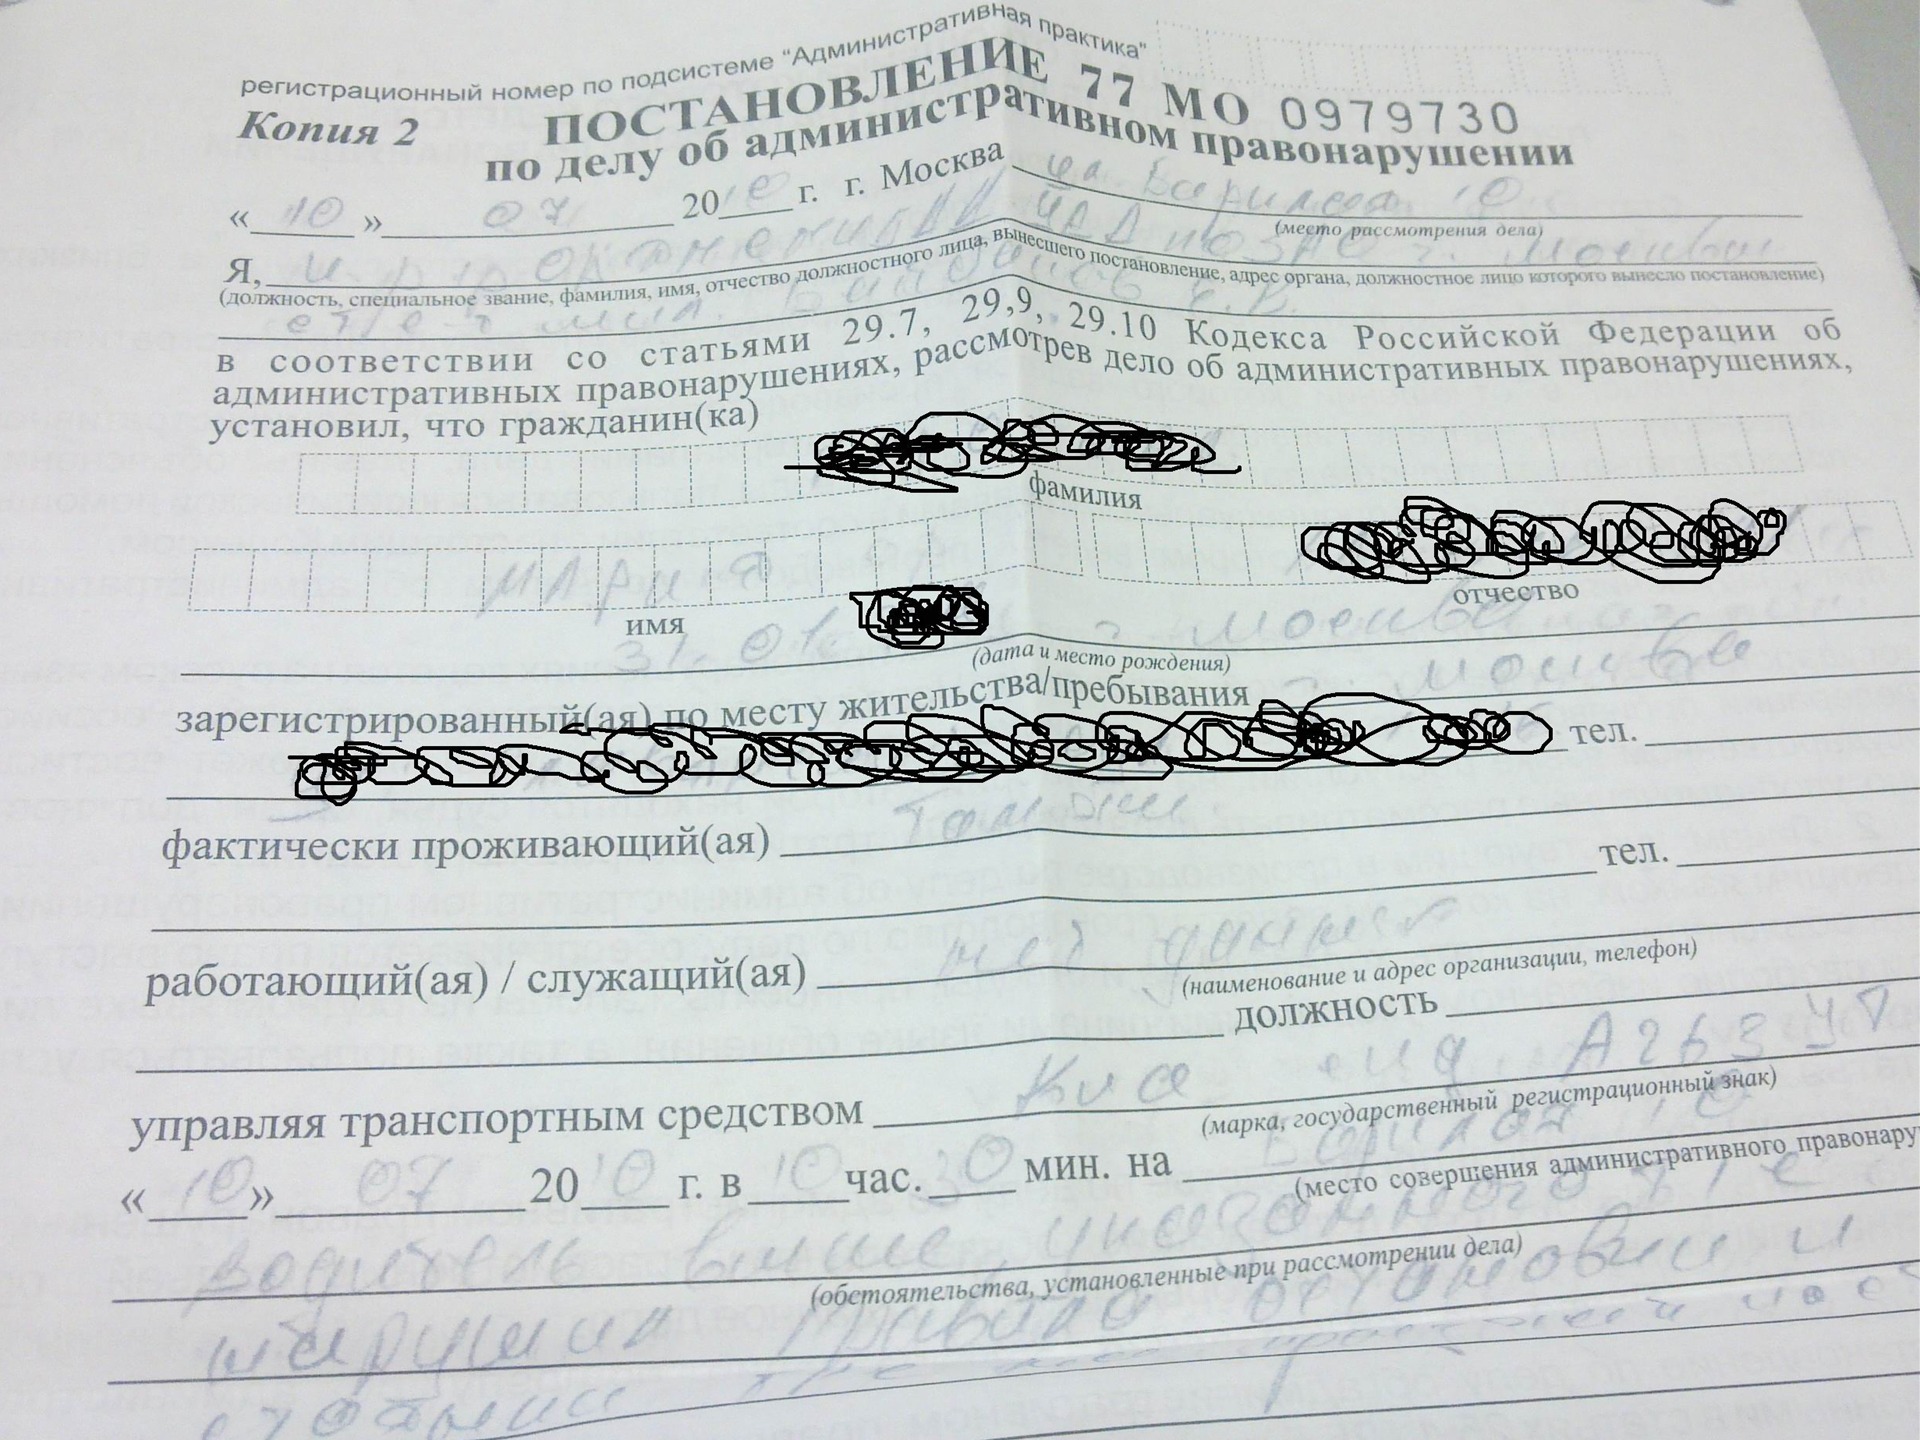 регистрационный номер по подсистеме "Административная практика"
Копия 2 ПОСТАНОВЛЕНИЕ 77 МО 0979730
по делу об административном правонарушении
« 10 » 07 2010 г. г. Москва ул.
(место рассмотрения дела)
Я, г. Москвы
(должность, специальное звание, фамилия, имя, отчество должностного лица, вынесшего постановление, адрес органа, должностное лицо которого вынесло постановление)
в соответствии со статьями 29.7, 29,9, 29.10 Кодекса Российской Федерации об
административных правонарушениях, рассмотрев дело об административных правонарушениях,
установил, что гражданин(ка)
фамилия
Мария
имя отчество
31.01. г. Москва
(дата и место рождения)
зарегистрированный(ая) по месту жительства/пребывания г. Москва
тел.
фактически проживающий(ая) Там же
тел.
работающий(ая) / служащий(ая) нет данных
(наименование и адрес организации, телефон)
должность
управляя транспортным средством Киа сид А263УР
(марка, государственный регистрационный знак)
« 10 » 07 2010 г. в 10 час. 30 мин. на
(место совершения административного правонару
водитель выше указанного т/с
(обстоятельства, установленные при рассмотрении дела)
нарушил правила остановки и
стоянки проезжей